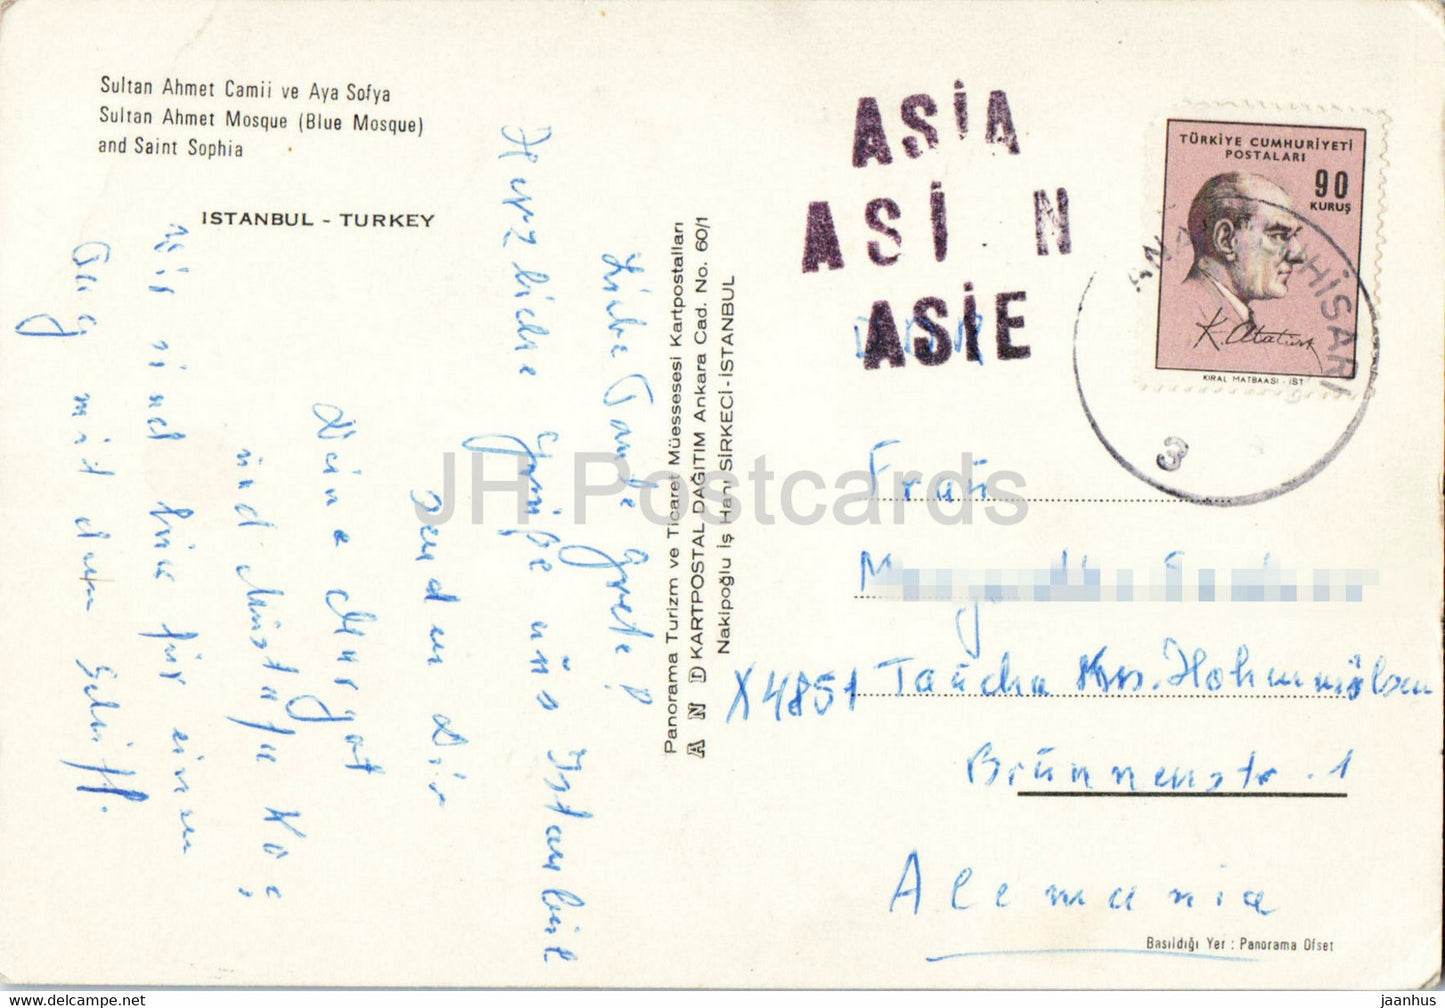 Sultan Ahmet Camii ve Aya Sofya
Sultan Ahmet Mosque (Blue Mosque)
and Saint Sophia
ISTANBUL - TURKEY
Liebe Tante Grete!
Herzliche Grüße aus Istanbul
senden Dir
Deine Margot
und Mustafa Koç,
Wir sind hier für einen
Tag mit dem Schiff.
Panorama Turizm ve Ticaret Müessesesi Kartpostalları
AND KARTPOSTAL DAĞITIM Ankara Cad. No. 60/1
Nakipoğlu İş Hanı SİRKECİ-İSTANBUL
ASİA
ASİ N
ASİE
TÜRKİYE CUMHURİYETİ
POSTALARI
90
KURUŞ
K. Atatürk
KIRAL MATBAASI - İST
HİSARI
3
Frau
X4851 Taucha Krs. Hohenmölsen
Brunnenstr. 1
Alemania
Basıldığı Yer : Panorama Ofset
JH Postcards
https://www.delcampe.net
jaanhus